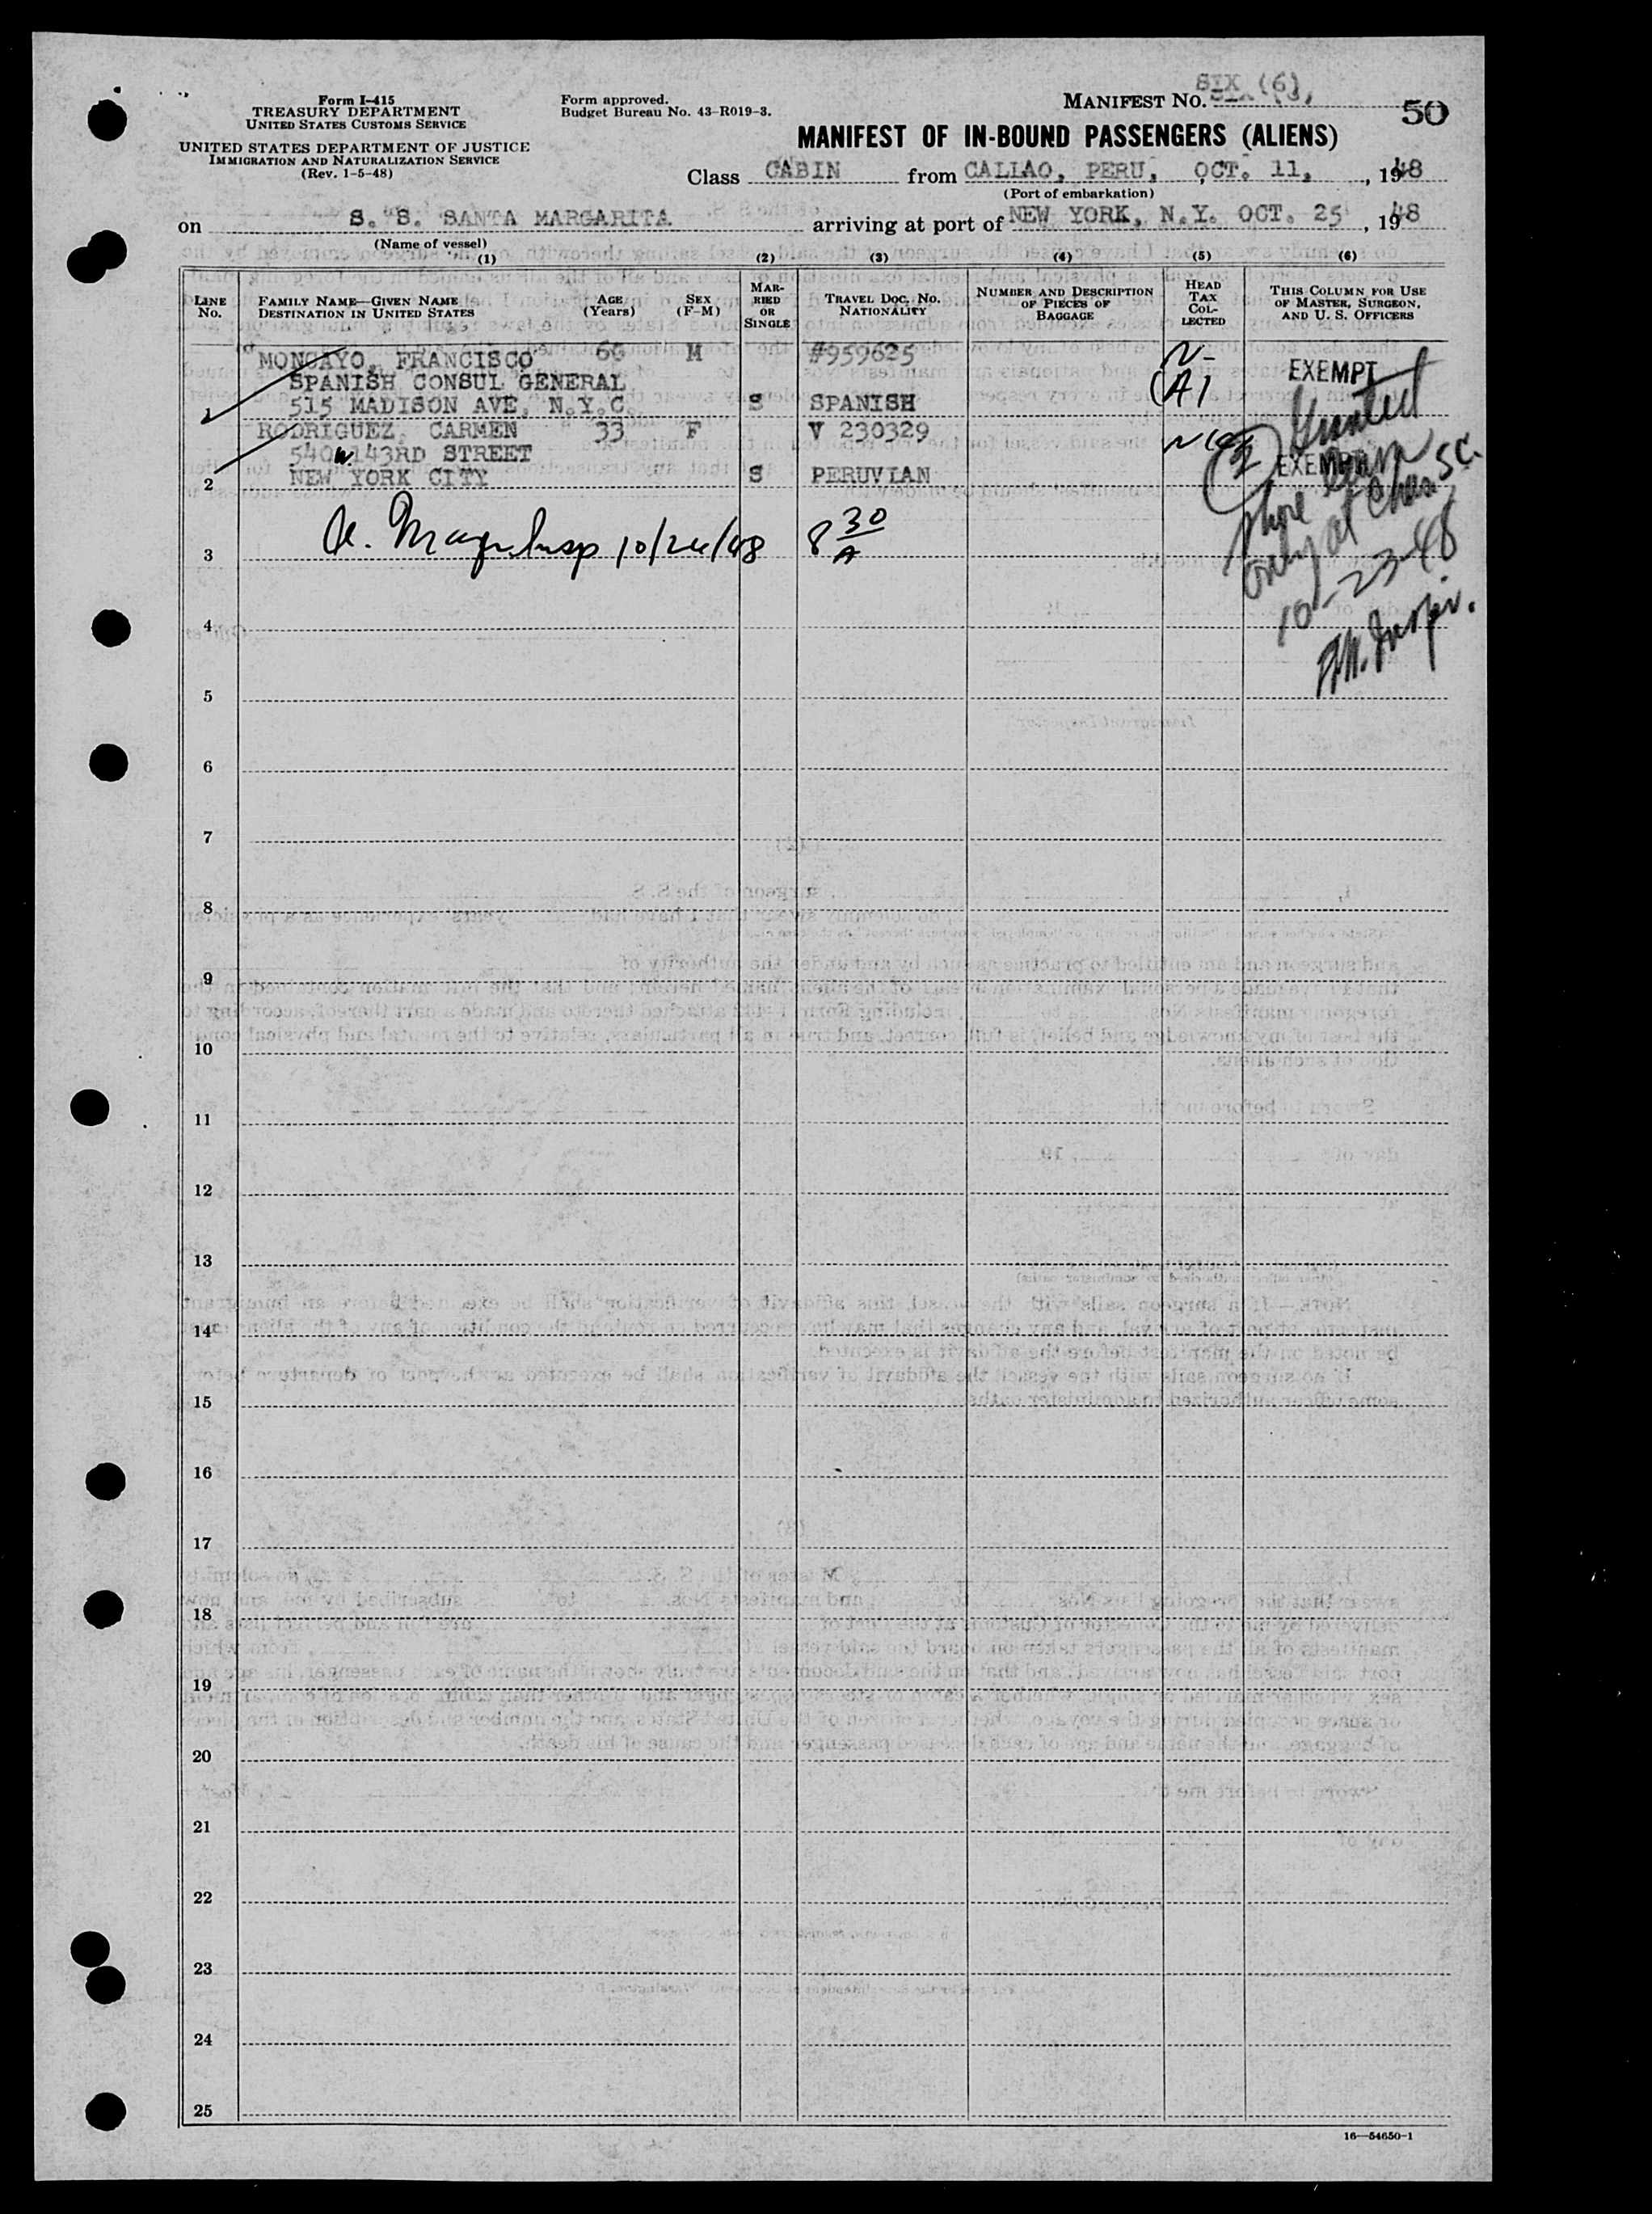 Form I-415
TREASURY DEPARTMENT
UNITED STATES CUSTOMS SERVICE
UNITED STATES DEPARTMENT OF JUSTICE
IMMIGRATION AND NATURALIZATION SERVICE
(Rev. 1-5-48)
Form approved.
Budget Bureau No. 43-R019-3.
MANIFEST NO. SIX (6)
50
MANIFEST OF IN-BOUND PASSENGERS (ALIENS)
Class CABIN from CALLAO, PERU, OCT. 11, , 1948
(Port of embarkation)
on S. S. SANTA MARGARITA arriving at port of NEW YORK, N.Y. OCT. 25 , 1948
(Name of vessel)
(1) (2) (3) (4) (5) (6)
LINE No. FAMILY NAME—GIVEN NAME DESTINATION IN UNITED STATES AGE (Years) SEX (F-M) MARRIED OR SINGLE TRAVEL DOC. NO. NATIONALITY NUMBER AND DESCRIPTION OF PIECES OF BAGGAGE HEAD TAX COLLECTED THIS COLUMN FOR USE OF MASTER, SURGEON, AND U. S. OFFICERS
MONCAYO, FRANCISCO M #959625 N-
SPANISH CONSUL GENERAL (A) EXEMPT
1 515 MADISON AVE. N.Y.C. S SPANISH
RODRIGUEZ, CARMEN 33 F V 230329
540 W. 143RD STREET EXEMPT
2 NEW YORK CITY S PERUVIAN
Granted
shore leave
only at Chas. SC.
10-23-48
3 Insp 10/24/48 8 30 A
4
5
6
7
8
9
10
11
12
13
14
15
16
17
18
19
20
21
22
23
24
25
16—54650-1